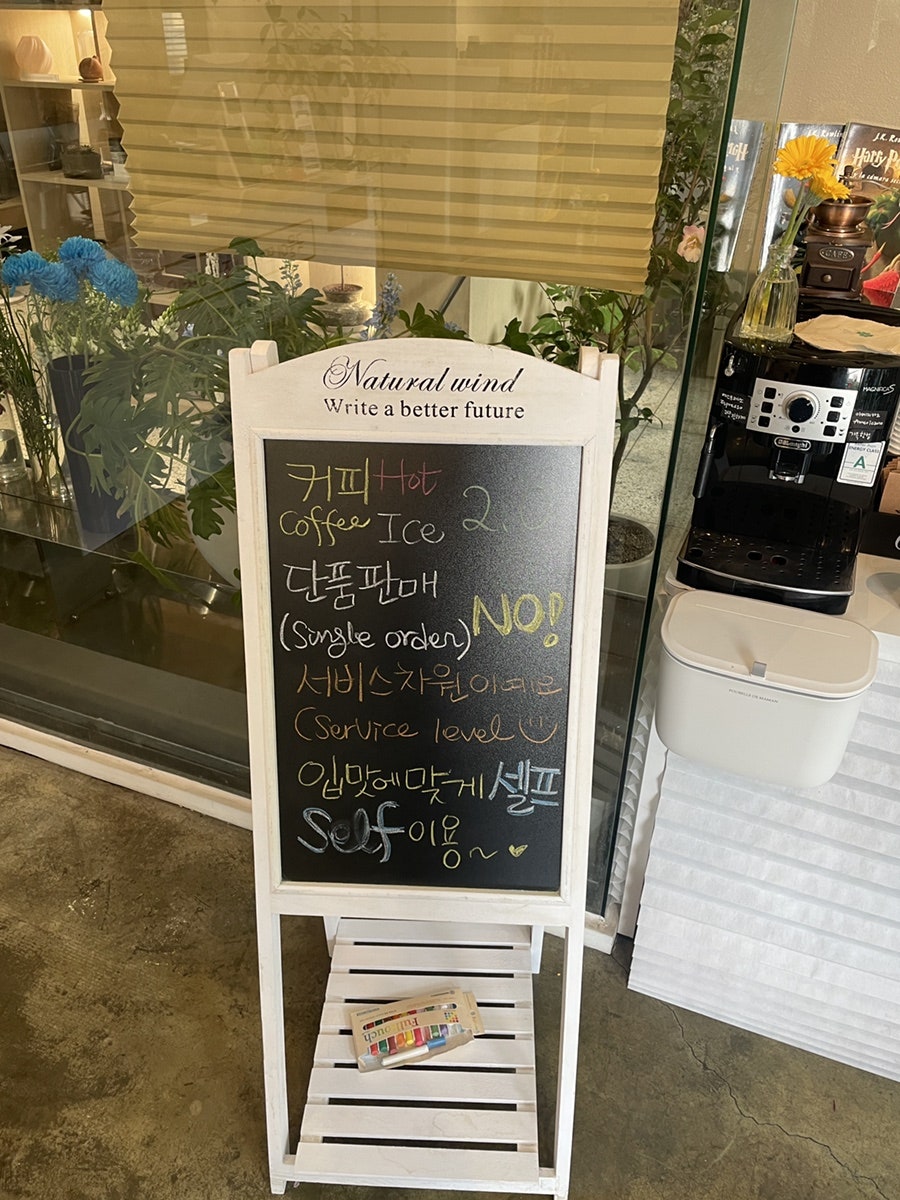 Natural wind
Write a better future
커피 Hot
coffee Ice 2.
단품판매
(Single order) NO!
서비스차원이예요
(Service level
입맛에맞게 셀프
Self 이용~
J.R.
Harry
CAFE
MAGNIFICA S
DeLonghi
ENERGY CLASS
A
Fulltouch